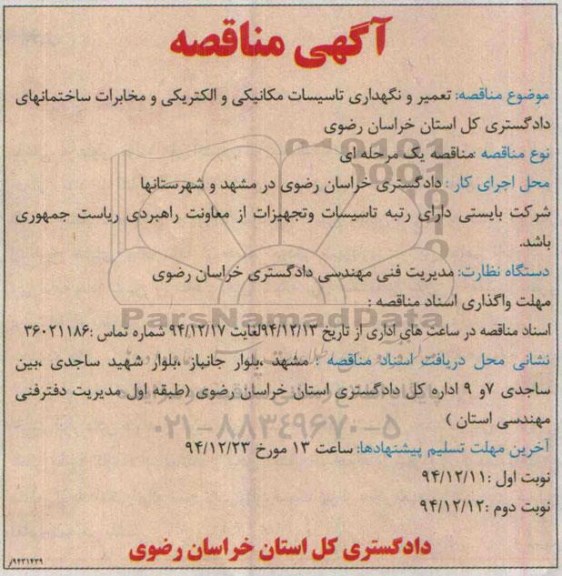 آگهی مناقصه
موضوع مناقصه: تعمیر و نگهداری تاسیسات مکانیکی و الکتریکی و مخابرات ساختمانهای
دادگستری کل استان خراسان رضوی
نوع مناقصه :مناقصه یک مرحله ای
محل اجرای کار : دادگستری خراسان رضوی در مشهد و شهرستانها
شرکت بایستی دارای رتبه تاسیسات وتجهیزات از معاونت راهبردی ریاست جمهوری
باشد.
دستگاه نظارت: مدیریت فنی مهندسی دادگستری خراسان رضوی
مهلت واگذاری اسناد مناقصه :
اسناد مناقصه در ساعت های اداری از تاریخ ۹۴/۱۲/۱۳لغایت ۹۴/۱۲/۱۷ شماره تماس :۳۶۰۲۱۱۸۶
نشانی محل دریافت اسناد مناقصه : مشهد ،بلوار جانباز ،بلوار شهید ساجدی ،بین
ساجدی ۷و ۹ اداره کل دادگستری استان خراسان رضوی (طبقه اول مدیریت دفترفنی
مهندسی استان )
آخرین مهلت تسلیم پیشنهادها: ساعت ۱۳ مورخ ۹۴/۱۲/۲۳
نوبت اول :۹۴/۱۲/۱۱
نوبت دوم :۹۴/۱۲/۱۲
دادگستری کل استان خراسان رضوی
۹۴۳۱۴۳۹/ر
ParsNamadData
۰۲۱-۸۸۳۴۹۶۷۰-۵